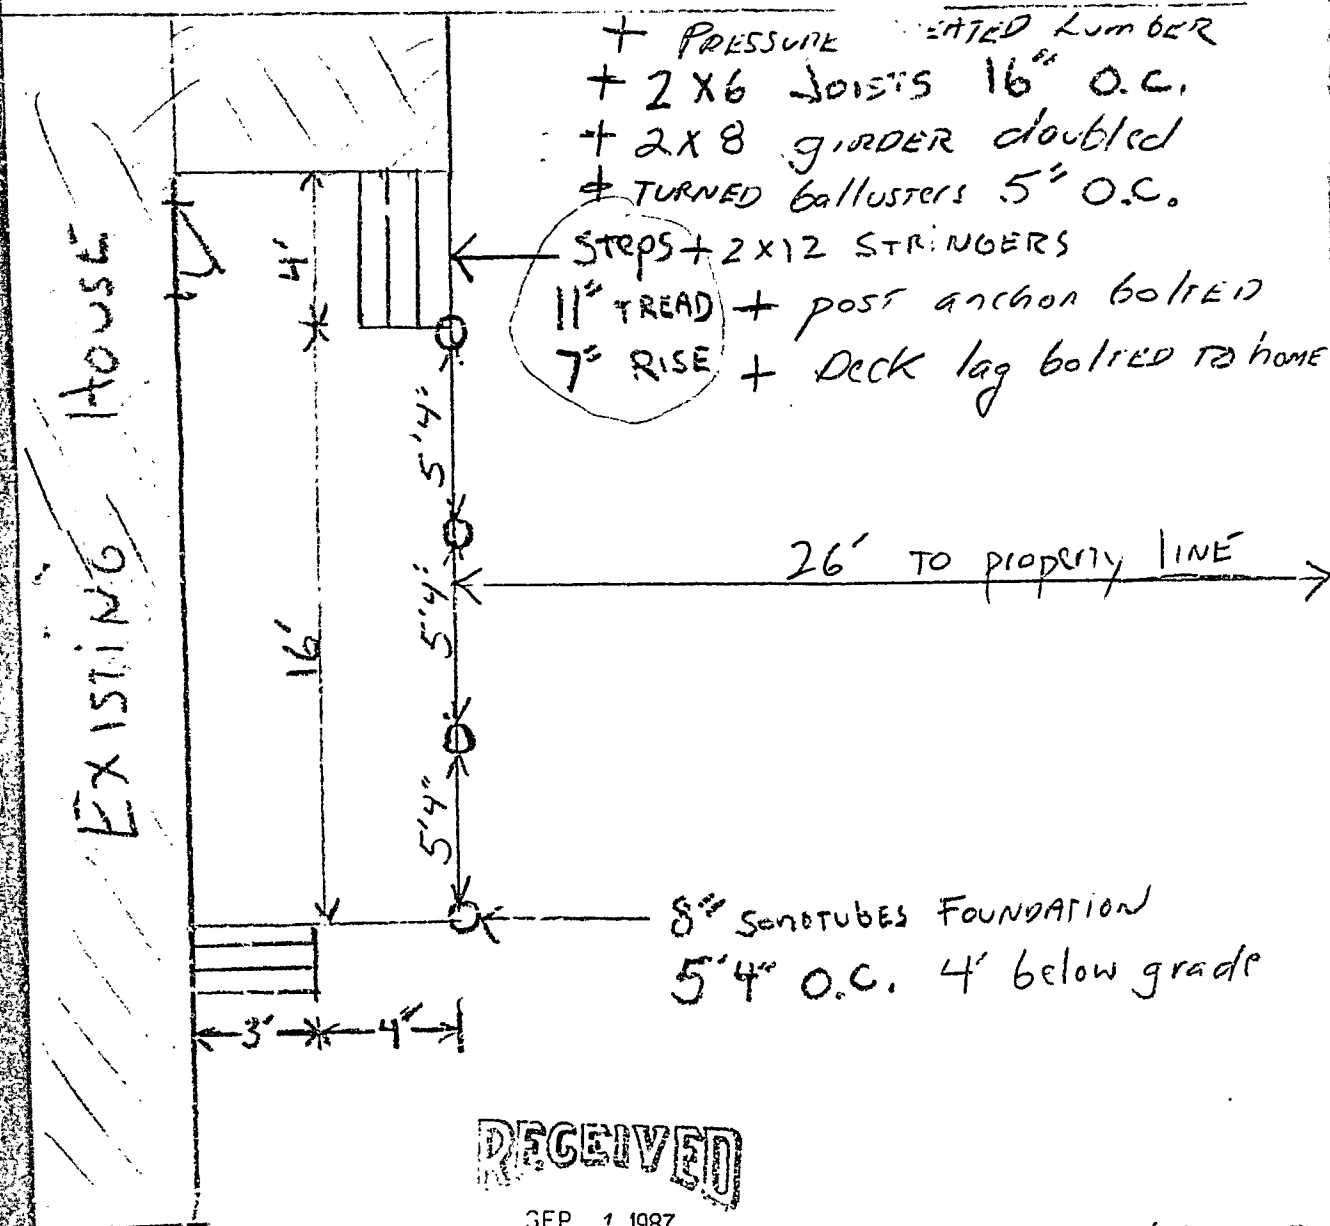 + PRESSURE EATED LumbER
+ 2X6 JOISTS 16" O.C.
+ 2X8 giRDER doubled
+ TURNED ballusters 5" O.C.
Steps + 2X12 STRiNGERS
11" TREAD + post anchor bolTED
7" RISE + Deck lag bolTED TO home
4'
5'4"
5'4"
5'4"
16'
EXISTING House
26' TO property LINE
8" SonoTubes FOUNDATION
5'4" O.C. 4' below grade
3' 4"
RECEIVED
SEP 1 1987